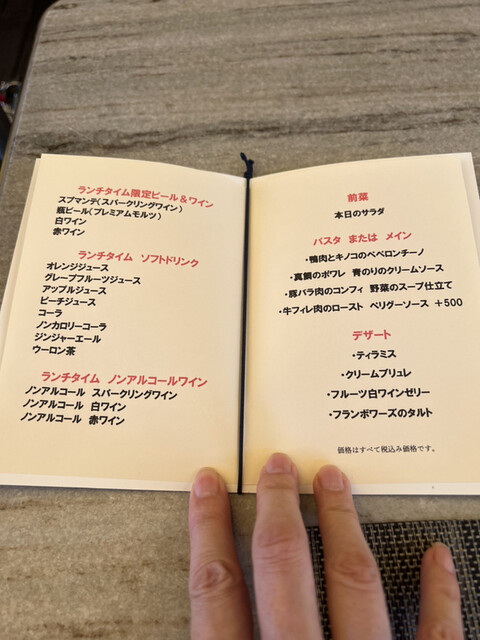 ランチタイム限定ビール&ワイン
スプマンテ(スパークリングワイン)
瓶ビール(プレミアムモルツ)
白ワイン
赤ワイン
ランチタイム ソフトドリンク
オレンジジュース
グレープフルーツジュース
アップルジュース
ピーチジュース
コーラ
ノンカロリーコーラ
ジンジャーエール
ウーロン茶
ランチタイム ノンアルコールワイン
ノンアルコール スパークリングワイン
ノンアルコール 白ワイン
ノンアルコール 赤ワイン
前菜
本日のサラダ
パスタ または メイン
・鴨肉とキノコのペペロンチーノ
・真鯛のポワレ 青のりのクリームソース
・豚バラ肉のコンフィ 野菜のスープ仕立て
・牛フィレ肉のロースト ペリグーソース +500
デザート
・ティラミス
・クリームブリュレ
・フルーツ白ワインゼリー
・フランボワーズのタルト
価格はすべて税込み価格です。